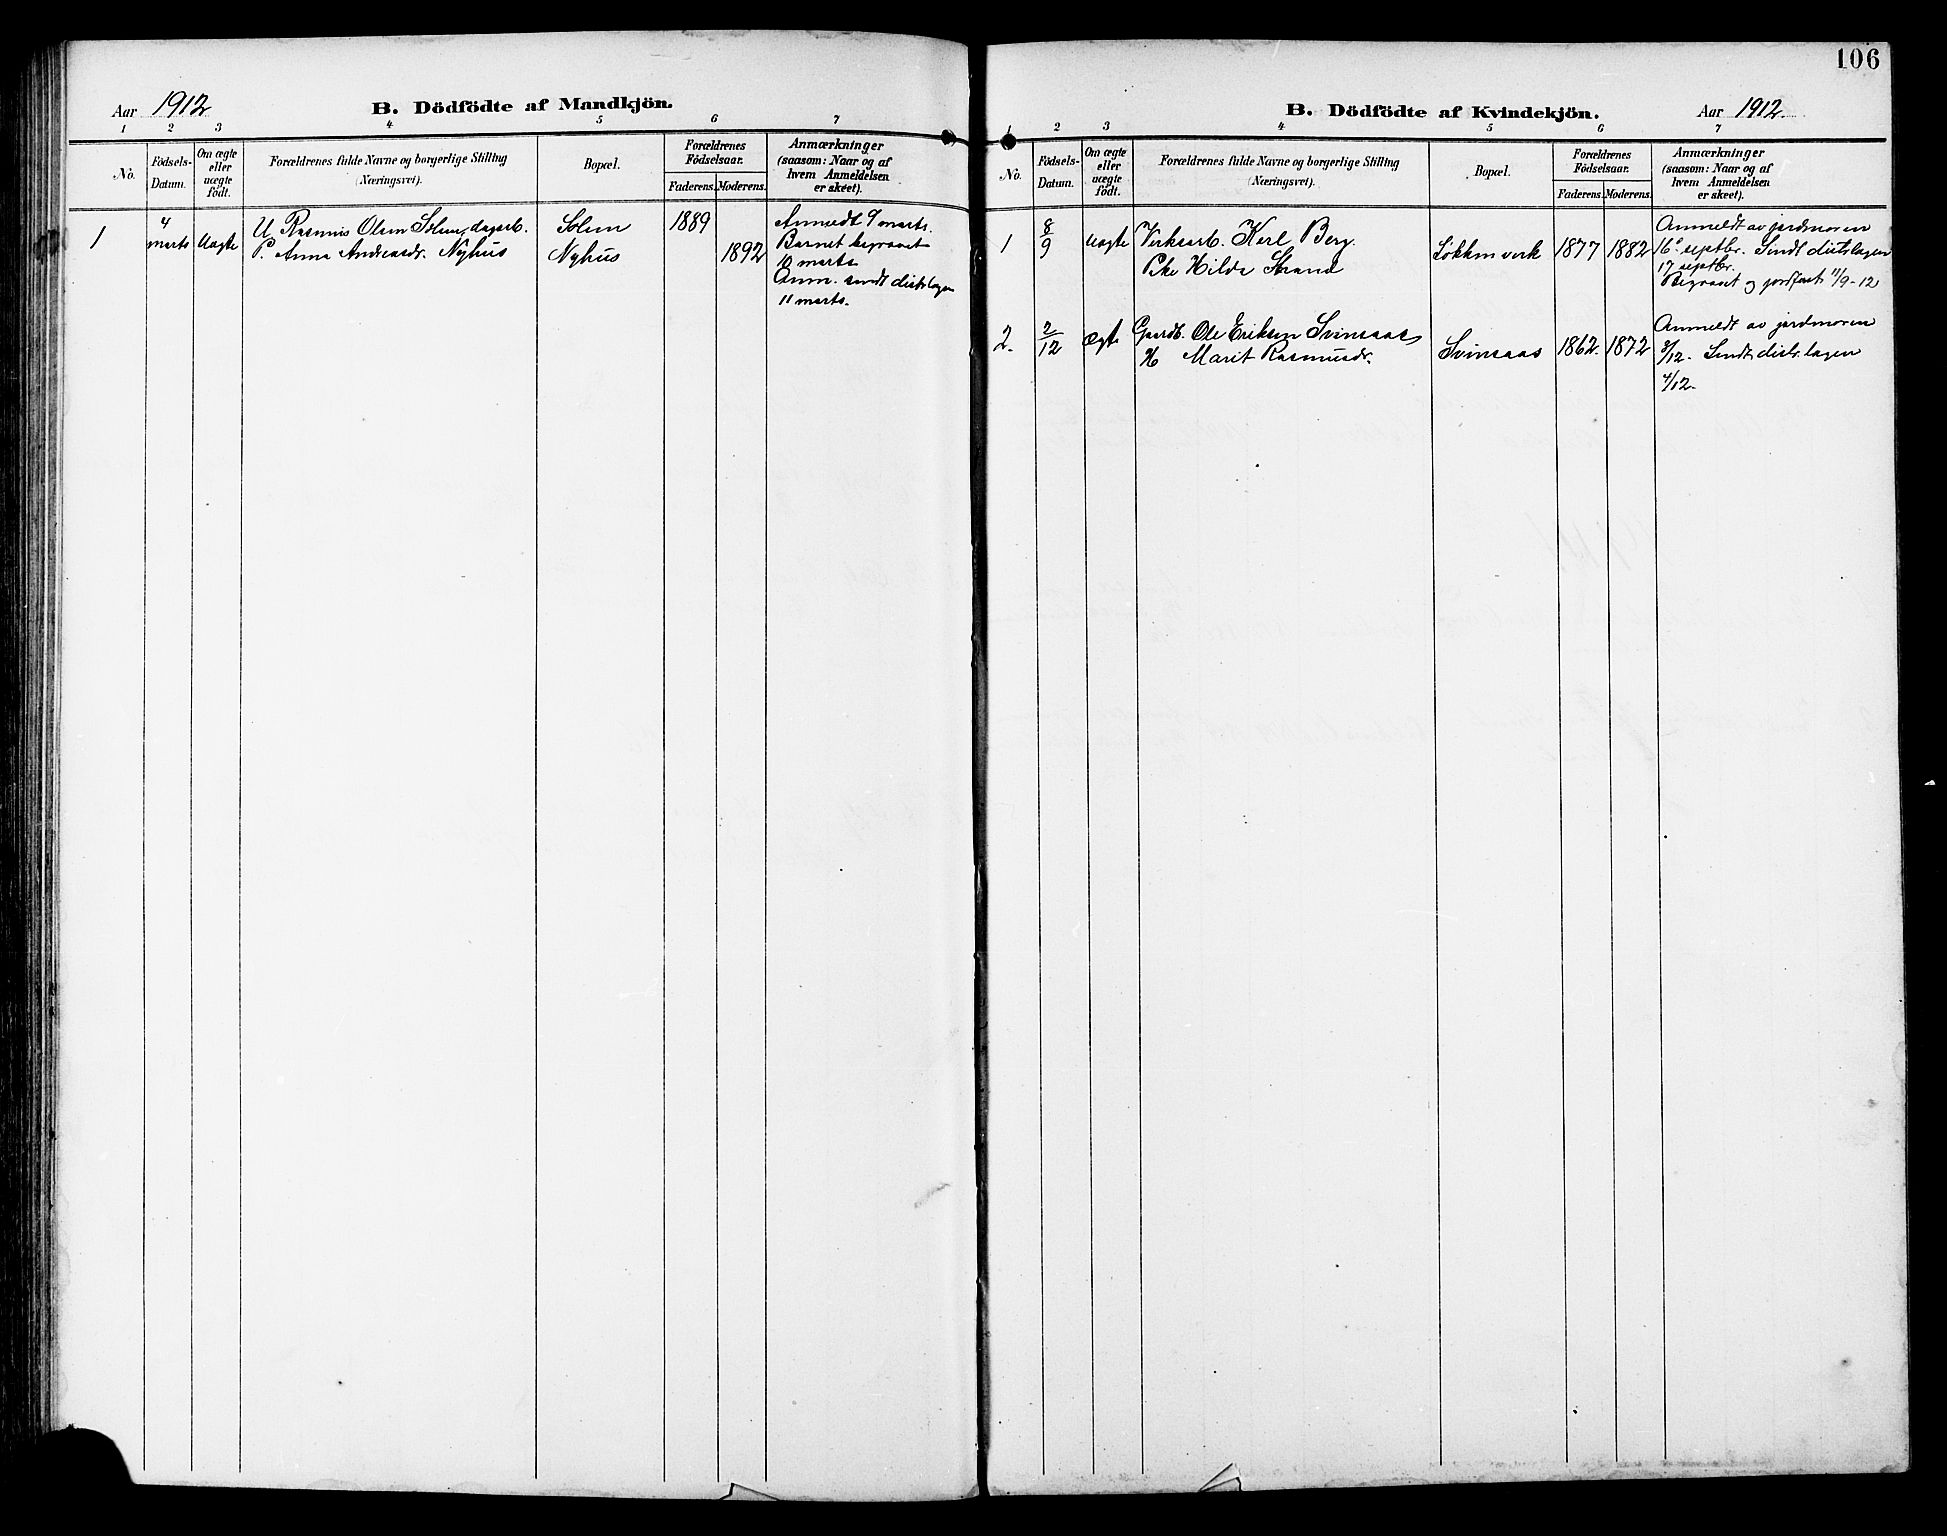 106
Aar 1912
B. Dödfödte af Mandkjön.
1 2 3 4 5 6 7
No.
Födsels-Datum.
Om ægte eller uægte födt.
Forældrenes fulde Navne og borgerlige Stilling (Næringsvei).
Bopæl.
Forældrenes Födselsaar.
Faderens. Moderens.
Anmærkninger (saasom: Naar og af hvem Anmeldelsen er skeet).
1
4 marts
Uægte
U Rasmus Olsen Solum, dagarb.
P. Anna Andreasdr. Nyhus
Solum
Nyhus
1889
1892
Anmeldt 9 marts.
Barnet begravet
10 marts
Anm. sendt distr.lægen
11 marts.
B. Dödfödte af Kvindekjön.
Aar 1912.
1 2 3 4 5 6 7
No.
Födsels-Datum.
Om ægte eller uægte födt.
Forældrenes fulde Navne og borgerlige Stilling (Næringsvei).
Bopæl.
Forældrenes Födselsaar.
Faderens. Moderens.
Anmærkninger (saasom: Naar og af hvem Anmeldelsen er skeet).
1
8/9
Uægte
Verksarb. Karl Berg.
Pike Hilda Strand
Løkken verk
1877
1882
Anmeldt av jordmoren
16. septbr. Sendt distr.lægen
17 septbr.
Begravet og jordfæst 11/9-12
2.
2/12
Ægte
Gaardb. Ole Eriksen Svinsaas
H Marit Rasmusdr.
Svinsaas
1862.
1872
Anmeldt av jordmoren
3/12. Sendt distr. lægen
4/12.